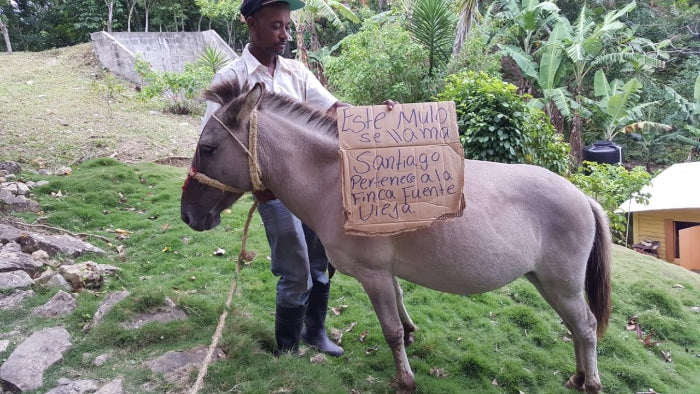 Este Mulo
se llama
Santiago
Pertenece a la
Finca Fuente
Vieja.